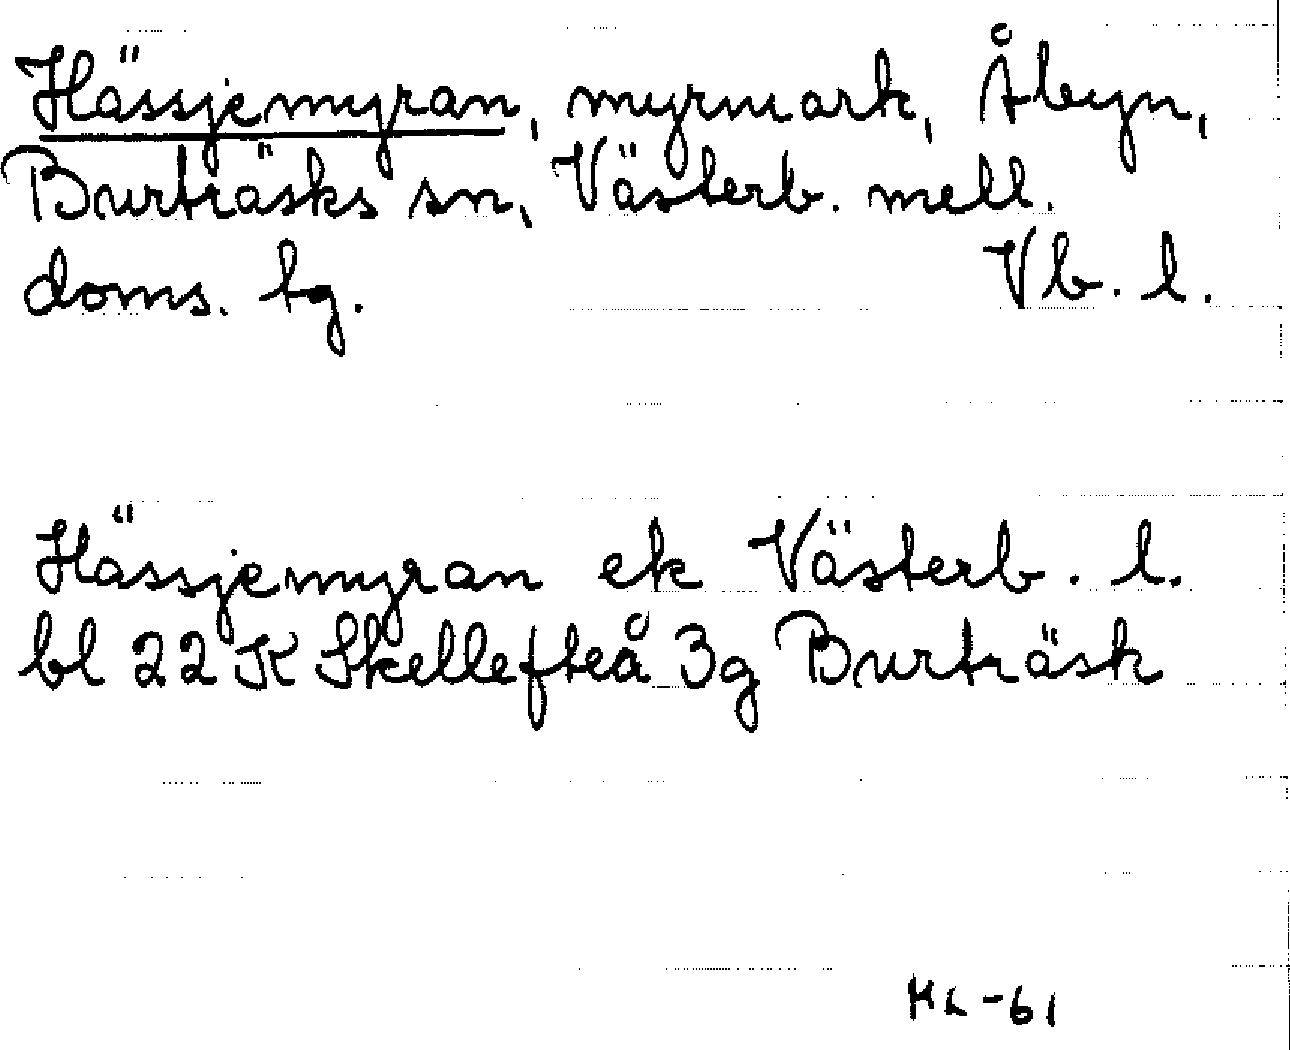 Hässjemyran, myrmark, Åbyn,
Burträsks sn, Västerb. mell.
doms. bg. Vb. l.
Hässjemyran ek Västerb. l.
bl 22 K Skellefteå 3g Burträsk
HL-61